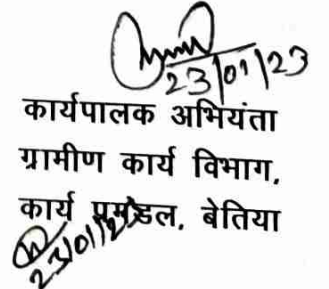 23/01/23
कार्यपालक अभियंता
ग्रामीण कार्य विभाग,
कार्य प्रमंडल, बेतिया
23/01/23